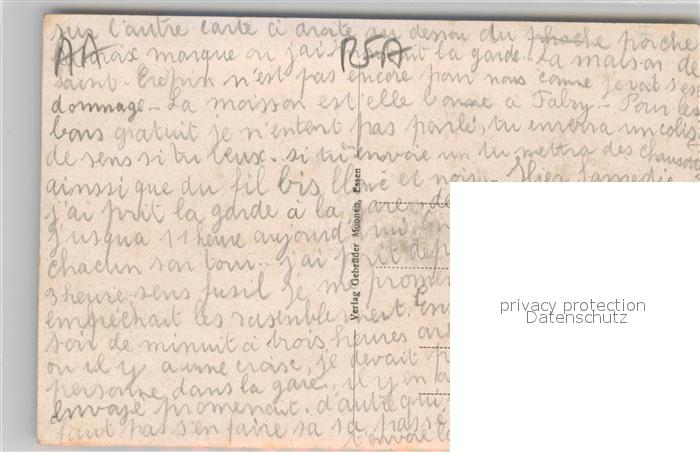 sur l'autre carte à droite au dessou du porche
AA
RFA
croix marque ou j'ai la garde. La maison de
saint-Crepin n'est pas encore pour nous comme
dommage. La moisson est'elle bonne à Fabry. Pour les
bons gratuit je n'entent pas parlé, tu enverra un colis
de sens si tu veux. si tu envoie un tu mettra des
ainssi que du fil bis blanc et noir. Hier Samedi
j'ai prit la garde à la gare de
jusqua 11 heure aujourd
chacun son tour. j'ai prit
3 heure sens fusil je me
empréchait les rasemblement. En
soir de minuit à trois heures
ou il y a une croix, je devait
personne dans la gare, il y en
envoyé promenait. d'autre qui
faut pas s'en faire sa
t'envoie
Verlag Gebrüder Moonen, Essen
privacy protection
Datenschutz